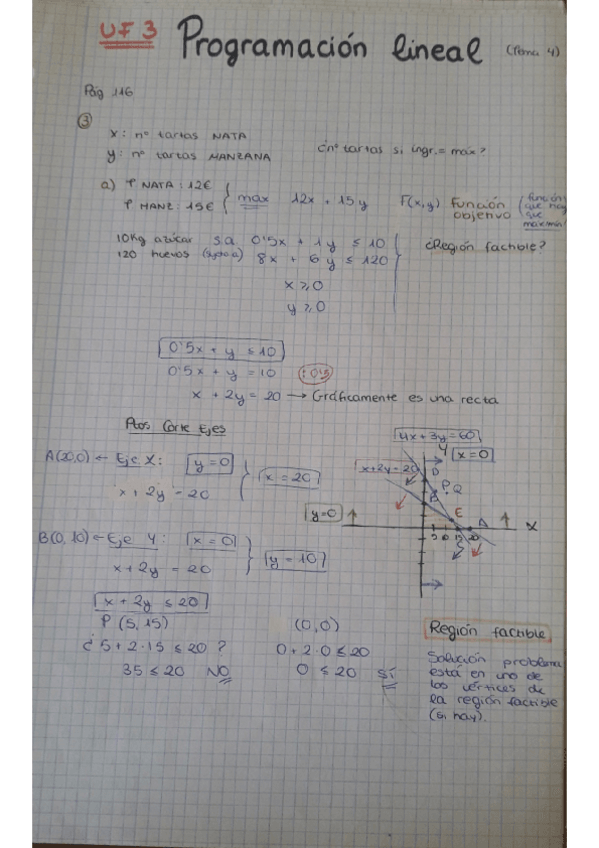 UF3 Programación lineal (Tema 4)
Pág 116
③
x: nº tartas NATA
y: nº tartas MANZANA
¿nº tartas si ingr. = máx?
a) P NATA: 12€
P MANZ: 15€
max 12x + 15y F(x,y) función objetivo
(función que hay que max/min)
10Kg azúcar s.a 0'5x + 1y ≤ 10
120 huevos 8x + 6y ≤ 120
x ≥ 0
y ≥ 0
¿Región factible?
0'5x + y ≤ 10
0'5x + y = 10 :0'5
x + 2y = 20 → Gráficamente es una recta
Ptos Corte Ejes
A(20,0) ← Eje X: y=0
x + 2y = 20
x = 20
B(0,10) ← Eje Y: x=0
x + 2y = 20
y = 10
4x+3y=60
Y x=0
x+2y=20
D
P Q
B
E
A
y=0
X
5 10 15 20
x + 2y ≤ 20
P (5,15)
¿5 + 2·15 ≤ 20?
35 ≤ 20 NO
(0,0)
0 + 2·0 ≤ 20
0 ≤ 20 SÍ
Región factible
Solución problema
está en uno de
los vértices de
la región factible
(si hay).